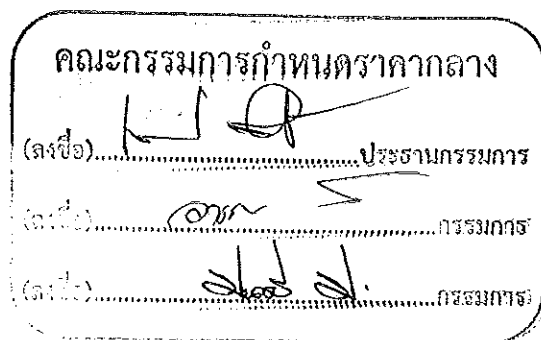 คณะกรรมการกำหนดราคากลาง
(ลงชื่อ)............................................ประธานกรรมการ
(ลงชื่อ)............................................กรรมการ
(ลงชื่อ)............................................กรรมการ